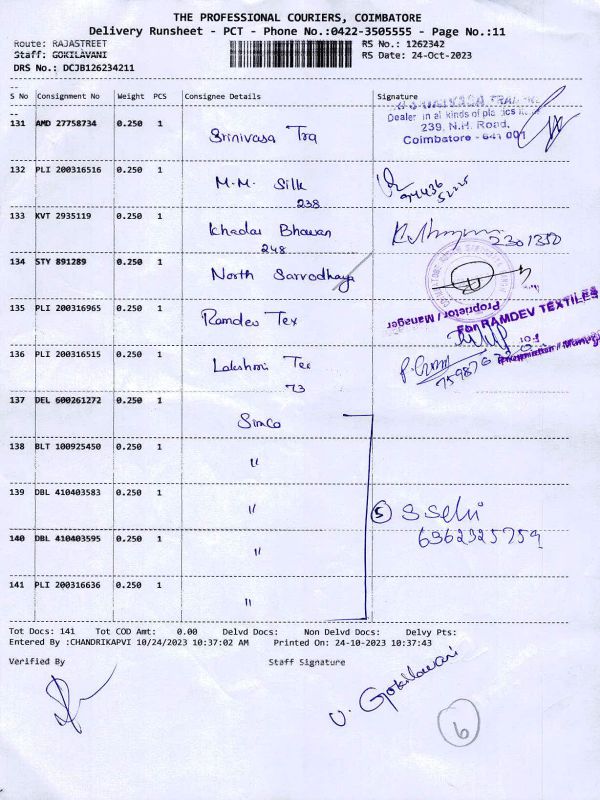 THE PROFESSIONAL COURIERS, COIMBATORE
Delivery Runsheet - PCT - Phone No.:0422-3505555 - Page No.:11
Route: RAJASTREET RS No.: 1262342
Staff: GOKILAVANI RS Date: 24-Oct-2023
DRS No.: DCJB126234211
S No Consignment No Weight PCS Consignee Details Signature
131 AMD 27758734 0.250 1 Srinivasa Tra
Dealer in all kinds of
239, N.H. Road,
Coimbatore - 641 001
132 PLI 200316516 0.250 1 M.M. Silk
238
133 KVT 2935119 0.250 1 Khadai Bhavan 2301350
248
134 STY 891289 0.250 1 North Sarvodhaya
135 PLI 200316965 0.250 1 Ramdev Tex
For RAMDEV TEXTILES
Proprietor / Manager
For
136 PLI 200316515 0.250 1 Lakshmi Tex
73
137 DEL 600261272 0.250 1 Simco
138 BLT 100925450 0.250 1 "
139 DBL 410403583 0.250 1 " 5 S Selvi
6362325759
140 DBL 410403595 0.250 1 "
141 PLI 200316636 0.250 1 "
Tot Docs: 141 Tot COD Amt: 0.00 Delvd Docs: Non Delvd Docs: Delvy Pts:
Entered By :CHANDRIKAPVI 10/24/2023 10:37:02 AM Printed On: 24-10-2023 10:37:43
Verified By Staff Signature
V. Gokilavani
6